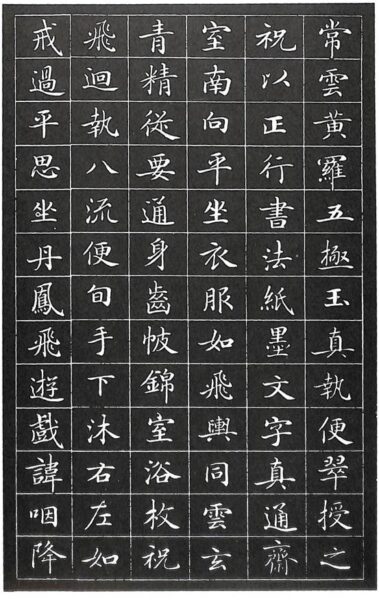 常雲黃羅五極玉真執便翠授之
祝以正行書法紙墨文字真通齋
室南向平坐衣服如飛輿同雲玄
青精從要通身齒帔錦室浴枚祝
飛迴執八流便旬手下沐右左如
戒過平思坐丹鳳飛遊戲諱咽降